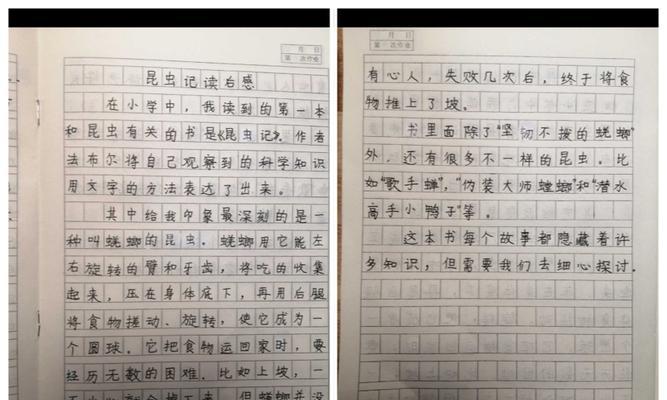 月 日
第 次作业
昆虫记读后感
在小学中,我读到的第一本
和昆虫有关的书是《昆虫记》。作者
法布尔将自己观察到的科学知识
用文字的方法表达了出来。
其中给我印象最深刻的是一
种叫蜣螂的昆虫。蜣螂用它能左
右旋转的臂和牙齿,将吃的收集
起来,压在身体底下,再用后腿
将食物搓动、旋转,使它成为一
个圆球。它把食物运回家时,要
经历无数的困难.比如上坡,一
不小心就会掉下来。但蜣螂并没
月 日
第 次作业
有心人,失败几次后,终于将食
物推上了坡。
书里面除了“坚韧不拨的蜣螂”
外,还有很多不一样的昆虫。比
如“歌手蝉”,“伪装大师螳螂”和“潜水
高手小鸭子”等。
这本书每个故事都隐藏着许
多知识,但需要我们去细心探讨.